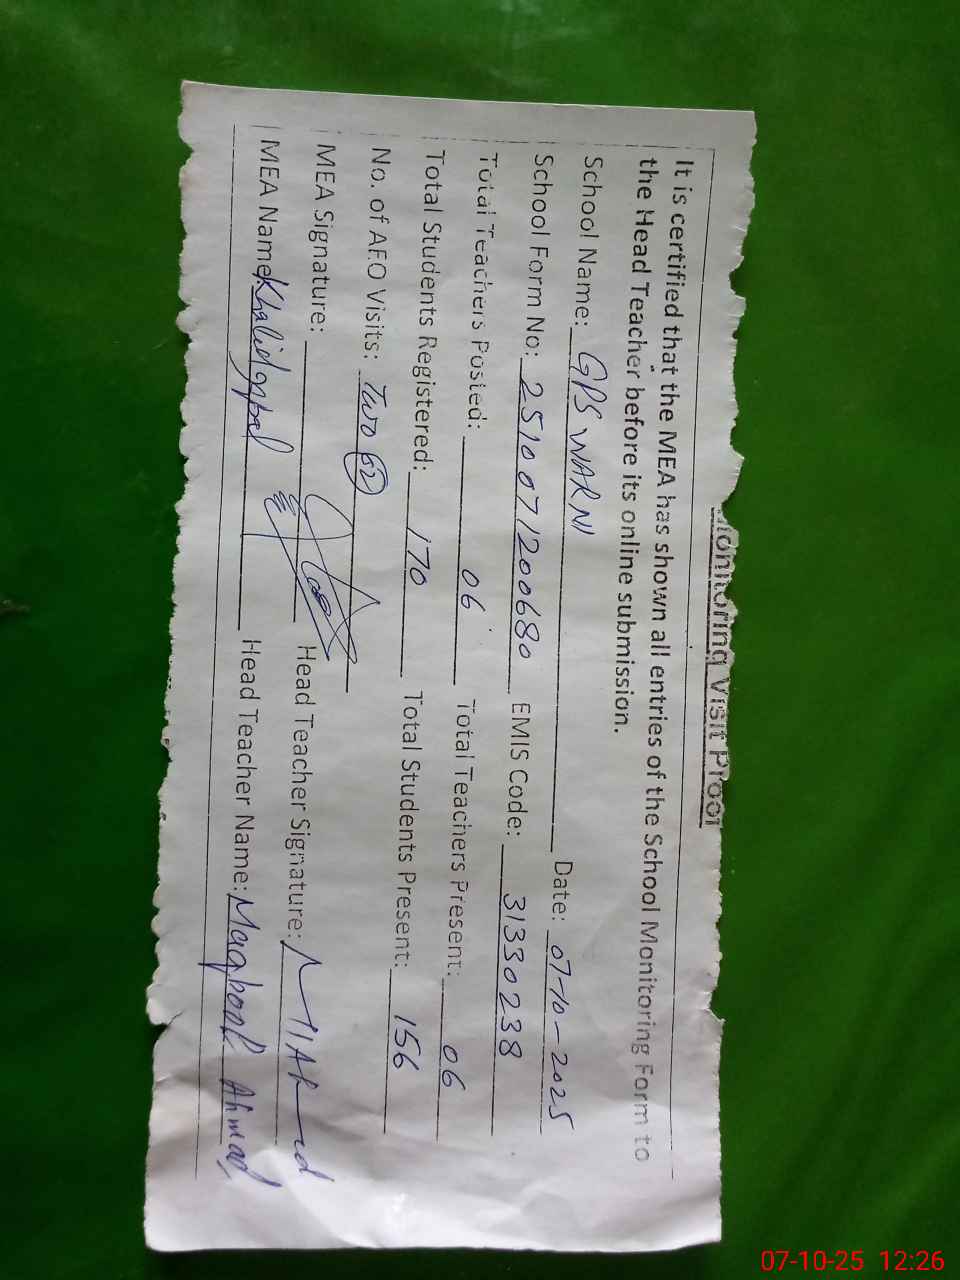 Monitoring Visit Proof
It is certified that the MEA has shown all entries of the School Monitoring Form to
the Head Teacher before its online submission.
School Name: GPS WARNI Date: 07-10-2025
School Form No: 2510071200680 EMIS Code: 31330238
Total Teachers Posted: 06 Total Teachers Present: 06
Total Students Registered: 170 Total Students Present: 156
No. of AEO Visits: Two 02
MEA Signature: Head Teacher Signature:
MEA Name: Khalid Iqbal Head Teacher Name: Maqbool Ahmad
07-10-25 12:26